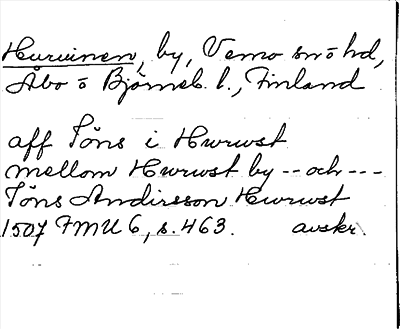 Hurvinen, by, Vemo sn o hd,
Åbo o Björneb. l., Finland
aff Jöns i Hurwst
mellom Hurwst by -- och ---
Jöns Andirsson Hurwst
1507 FMU 6, s. 463. avskr.